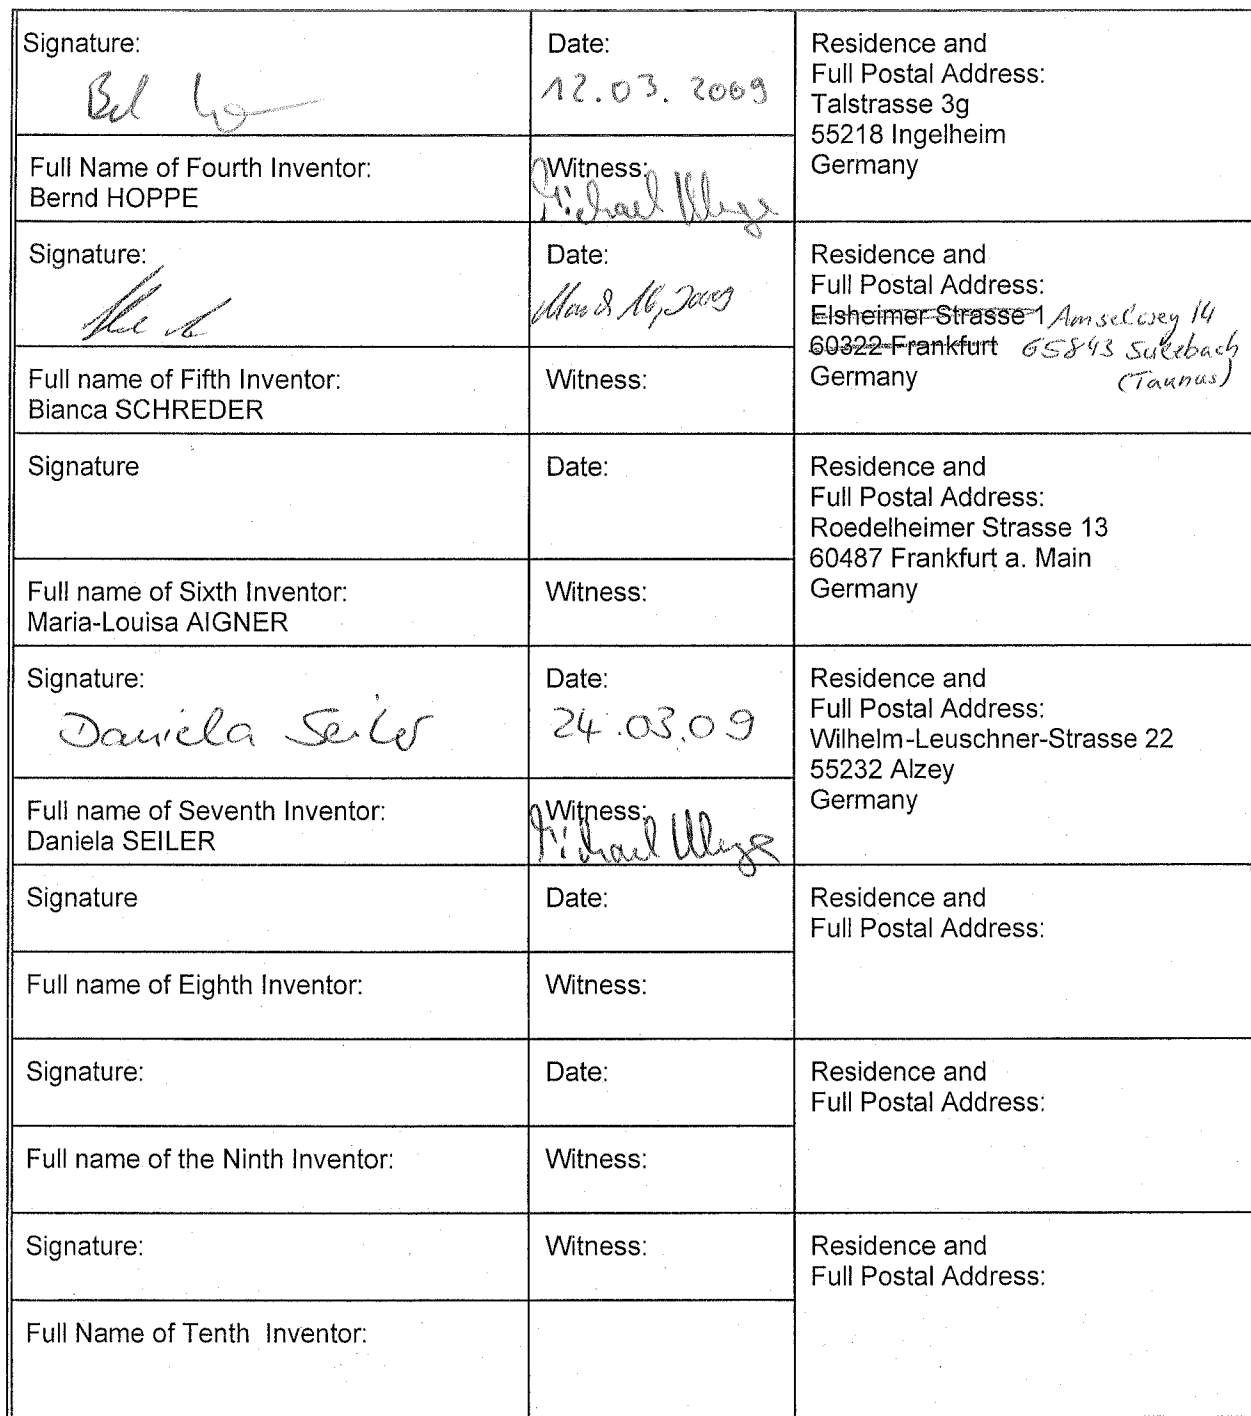 Signature:
Date:
12.03.2009
Residence and
Full Postal Address:
Talstrasse 3g
55218 Ingelheim
Germany
Full Name of Fourth Inventor:
Bernd HOPPE
Witness:
Michael
Signature:
Date:
March 16, 2009
Residence and
Full Postal Address:
Elsheimer Strasse 1 Amselweg 14
60322 Frankfurt 65843 Sulzbach
Germany (Taunus)
Full name of Fifth Inventor:
Bianca SCHREDER
Witness:
Signature
Date:
Residence and
Full Postal Address:
Roedelheimer Strasse 13
60487 Frankfurt a. Main
Germany
Full name of Sixth Inventor:
Maria-Louisa AIGNER
Witness:
Signature:
Daniela Seiler
Date:
24.03.09
Residence and
Full Postal Address:
Wilhelm-Leuschner-Strasse 22
55232 Alzey
Germany
Full name of Seventh Inventor:
Daniela SEILER
Witness:
Michael
Signature
Date:
Residence and
Full Postal Address:
Full name of Eighth Inventor:
Witness:
Signature:
Date:
Residence and
Full Postal Address:
Full name of the Ninth Inventor:
Witness:
Signature:
Witness:
Residence and
Full Postal Address:
Full Name of Tenth Inventor: